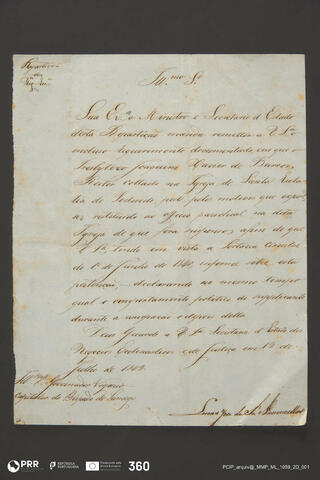 Repartição
da
Ill.mo Sr.
Sua Ex.a o Ministro e Secretario d'Estado
desta Repartição manda remetter a V. S.a
incluso requerimento documentado em que o
Presbytero Joaquim Xavier de
Reitor Collado na Igreja de Santa Eula
lia de pede pelo motivo que expoe,
ser restituido ao officio parochial na dita
Igreja de que fora suspenso; afim de que
V. S.a, tendo em vista a Portaria Circular
do 1.º de Junho de 1840, informe sobre esta
pertenção, declarando ao mesmo tempo
qual o comportamento politico do supplicante
durante a usurpação e depois della.
Deos Guarde a V. S.a Secretaria d'Estado dos
Negocios Ecclesiasticos e de Justiça em 19 de
Julho de 184
Ill.mo Sr. Governador Vigario
Capitular do Bispado de Lamego
PRR
REPÚBLICA
PORTUGUESA
360
PCIP_arquiv@_MMP_ML_1059_2D_001